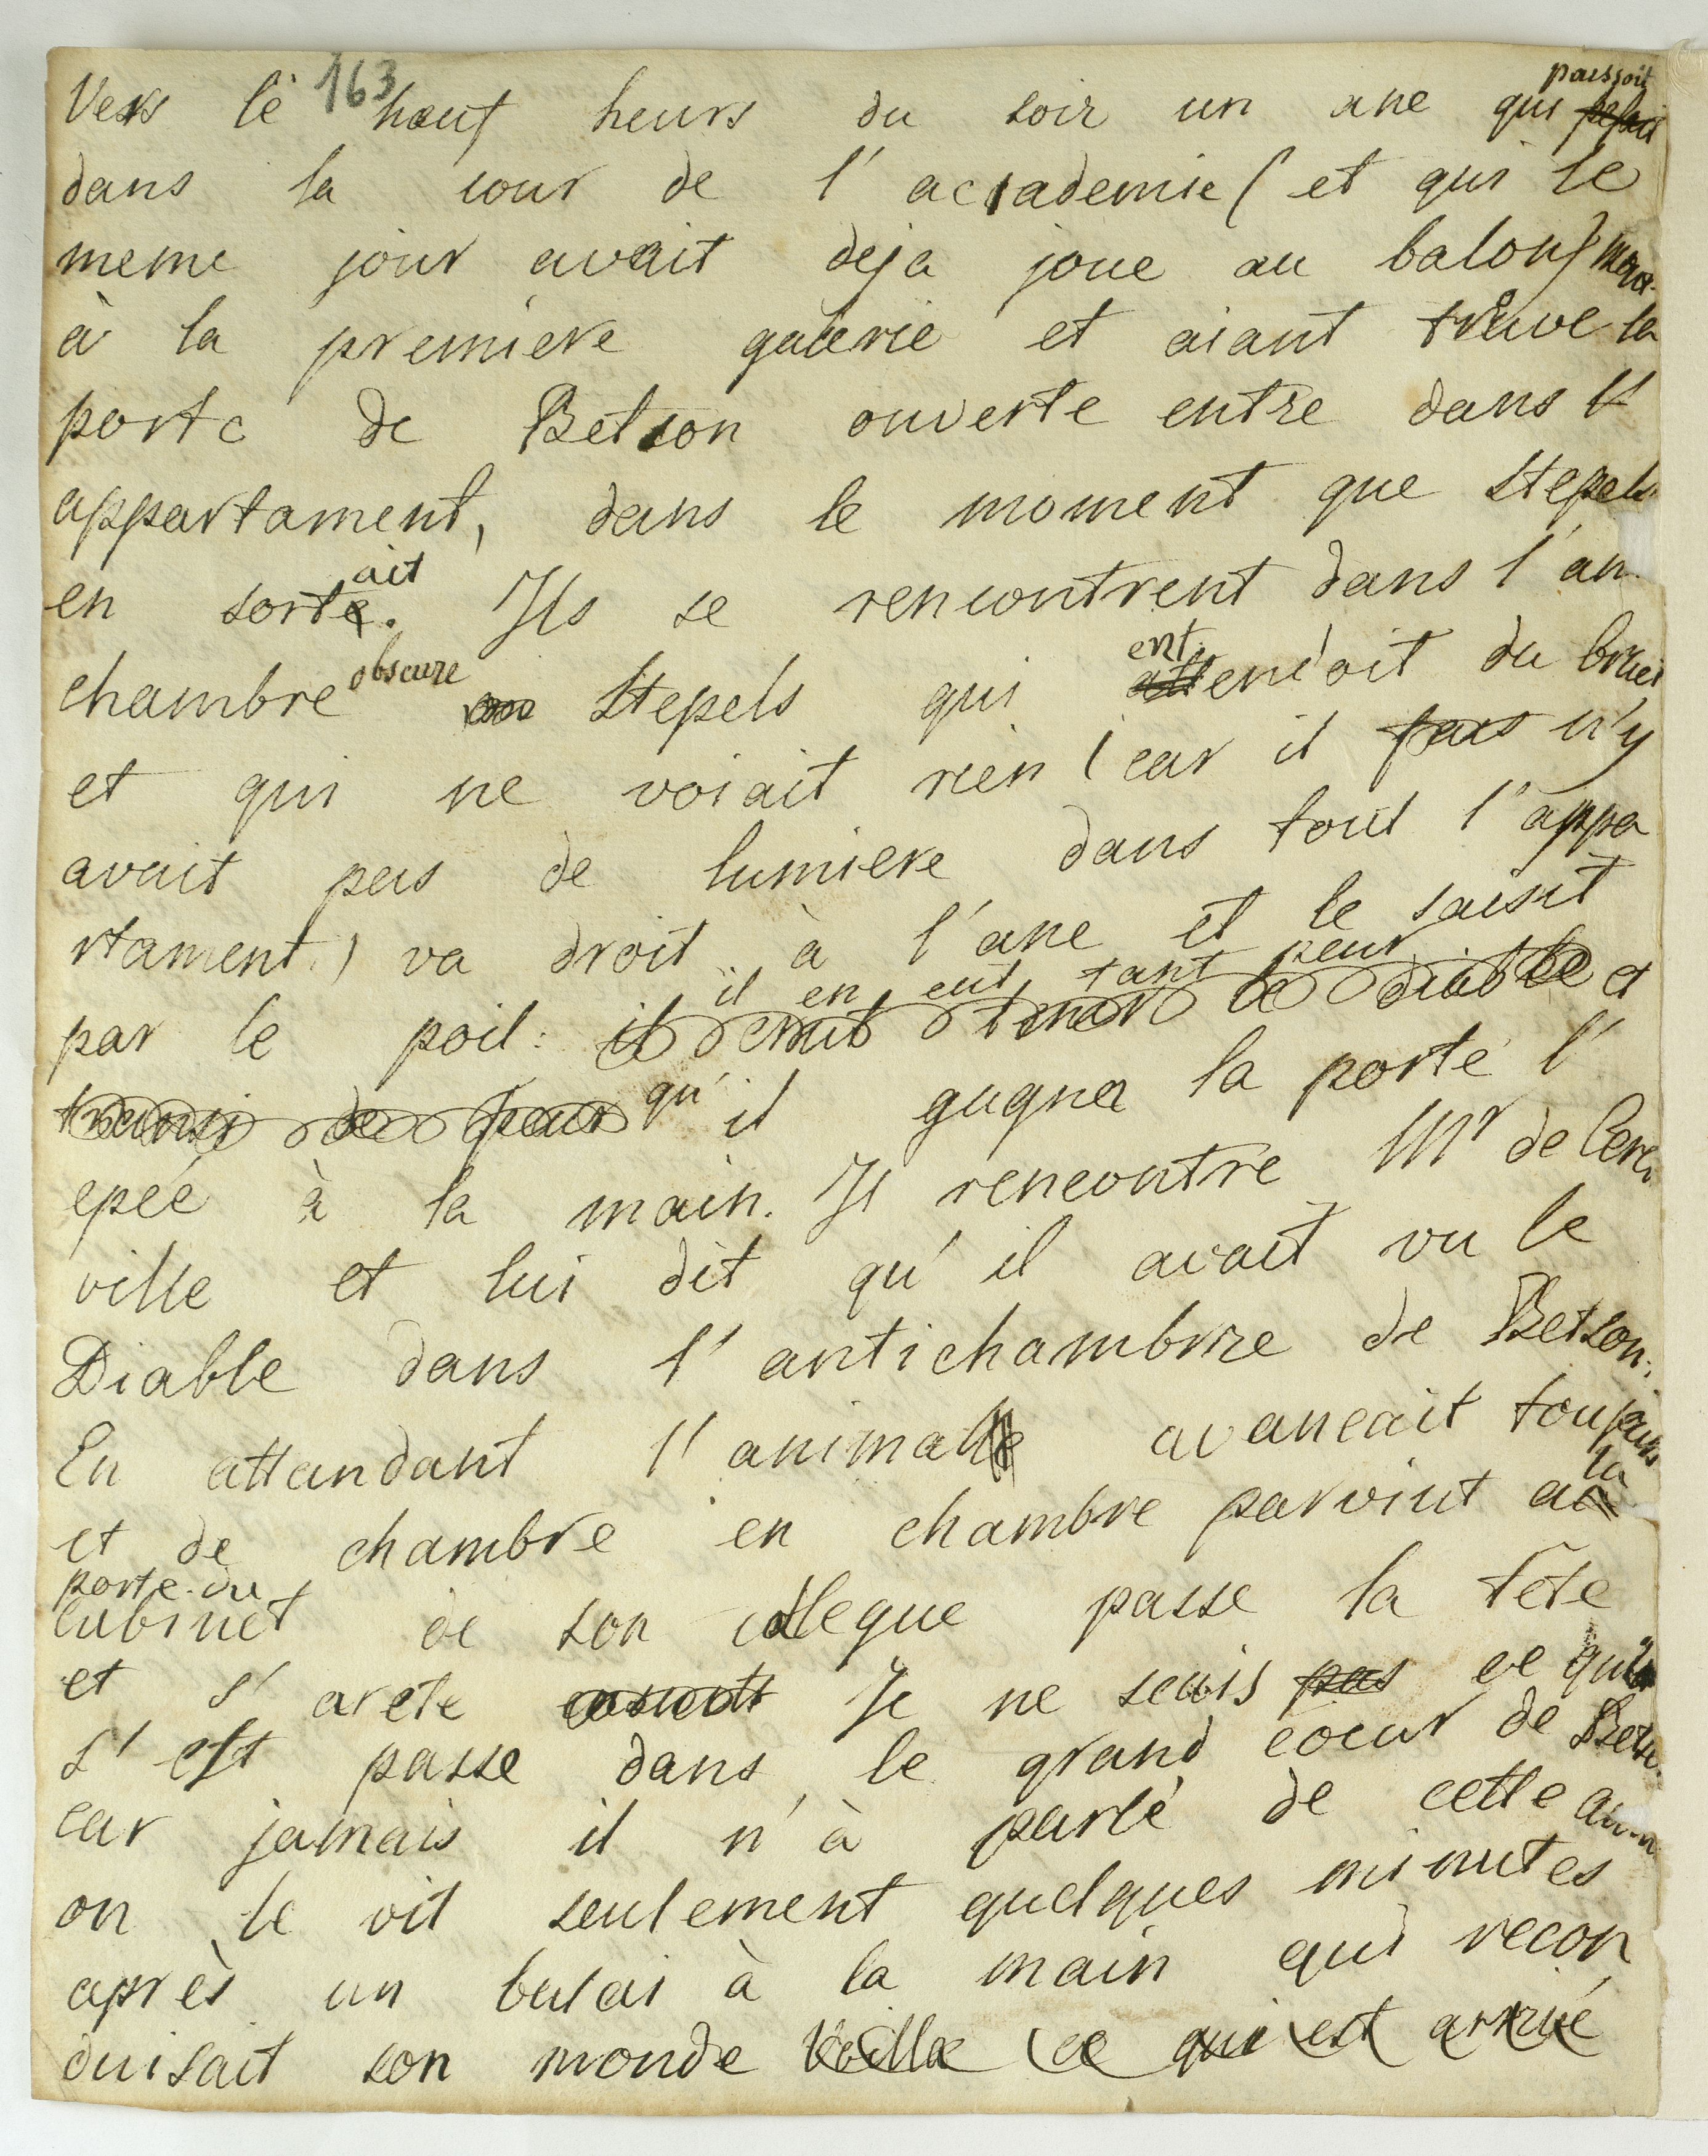 163
Vers lè heuf heurs du soir un ane qui paissoit
dans la cour de l' accademie ( et qui le
meme jour avait deja joue au balon) monte
à la premiere galerie et aiant trouve la
porte de Betson ouverte entre dans l'
appartament, dans le moment que Stepels
en sortait. Ils se rencontrent dans l'an
chambre obscure Stepels qui entendoit du bruit
et qui ne voiait rien ( car il n'y
avait pas de lumiere dans tout l'appa
rtament ) va droit à l'ane et le saisit
il en eut tant peur
par le poil: il crut tenir le diable et
transi de peur qu' il gagna la porte l'
epée à la main. Il rencontre Mr de Cere
ville et lui dit qu' il avait vu le
Diable dans l' antichambre de Betson.
En attandant l' animal avancait toujours
et de chambre en chambre parvint a la
porte du
cabinet de son collegue passe la tete
et s' arete Je ne scais pas ce qui
s' est passe dans le grand coeur de Betso
car jamais il n' à parlé de cette
on le vit seulement quelques minutes
après un balai à la main qui recon
duisait son monde Voilla ce qui est arrivé